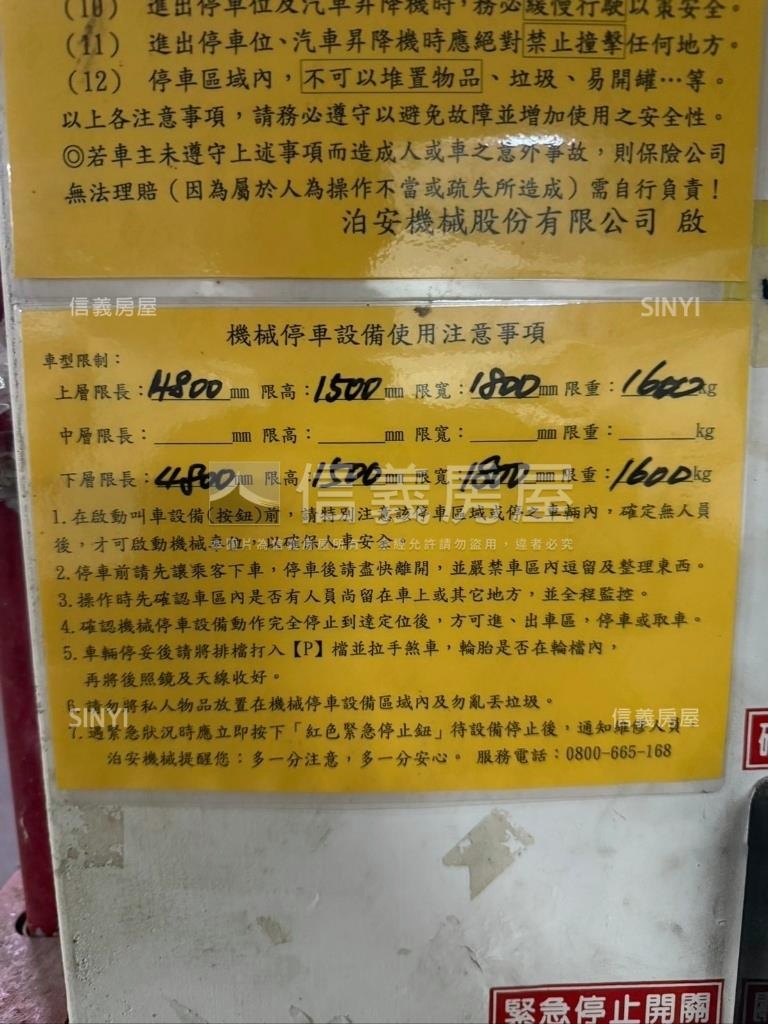 (10) 進出停車位及汽車昇降機時,務必緩慢行駛以策安全。
(11) 進出停車位、汽車昇降機時應絕對禁止撞擊任何地方。
(12) 停車區域內,不可以堆置物品、垃圾、易開罐…等。
以上各注意事項,請務必遵守以避免故障並增加使用之安全性。
◎若車主未遵守上述事項而造成人或車之意外事故,則保險公司
無法理賠(因為屬於人為操作不當或疏失所造成)需自行負責!
泊安機械股份有限公司 啟
信義房屋 SINYI
機械停車設備使用注意事項
車型限制:
上層限長:4800mm 限高:1500mm 限寬:1800mm 限重:1600kg
中層限長:______mm 限高:______mm 限寬:______mm 限重:______kg
下層限長:4800mm 限高:1500mm 限寬:1800mm 限重:1600kg
信義房屋
1.在啟動叫車設備(按鈕)前,請特別注意該停車區域或停之車輛內,確定無人員
後,才可啟動機械車位,以確保人車安全。
2.停車前請先讓乘客下車,停車後請盡快離開,並嚴禁車區內逗留及整理東西。
3.操作時先確認車區內是否有人員尚留在車上或其它地方,並全程監控。
4.確認機械停車設備動作完全停止到達定位後,方可進、出車區,停車或取車。
5.車輛停妥後請將排檔打入【P】檔並拉手煞車,輪胎是否在輪檔內,
再將後照鏡及天線收好。
6.請勿將私人物品放置在機械停車設備區域內及勿亂丟垃圾。
SINYI 信義房屋
7.遇緊急狀況時應立即按下「紅色緊急停止鈕」待設備停止後,通知維修人員
泊安機械提醒您:多一分注意,多一分安心。 服務電話:0800-665-168
緊急停止開關